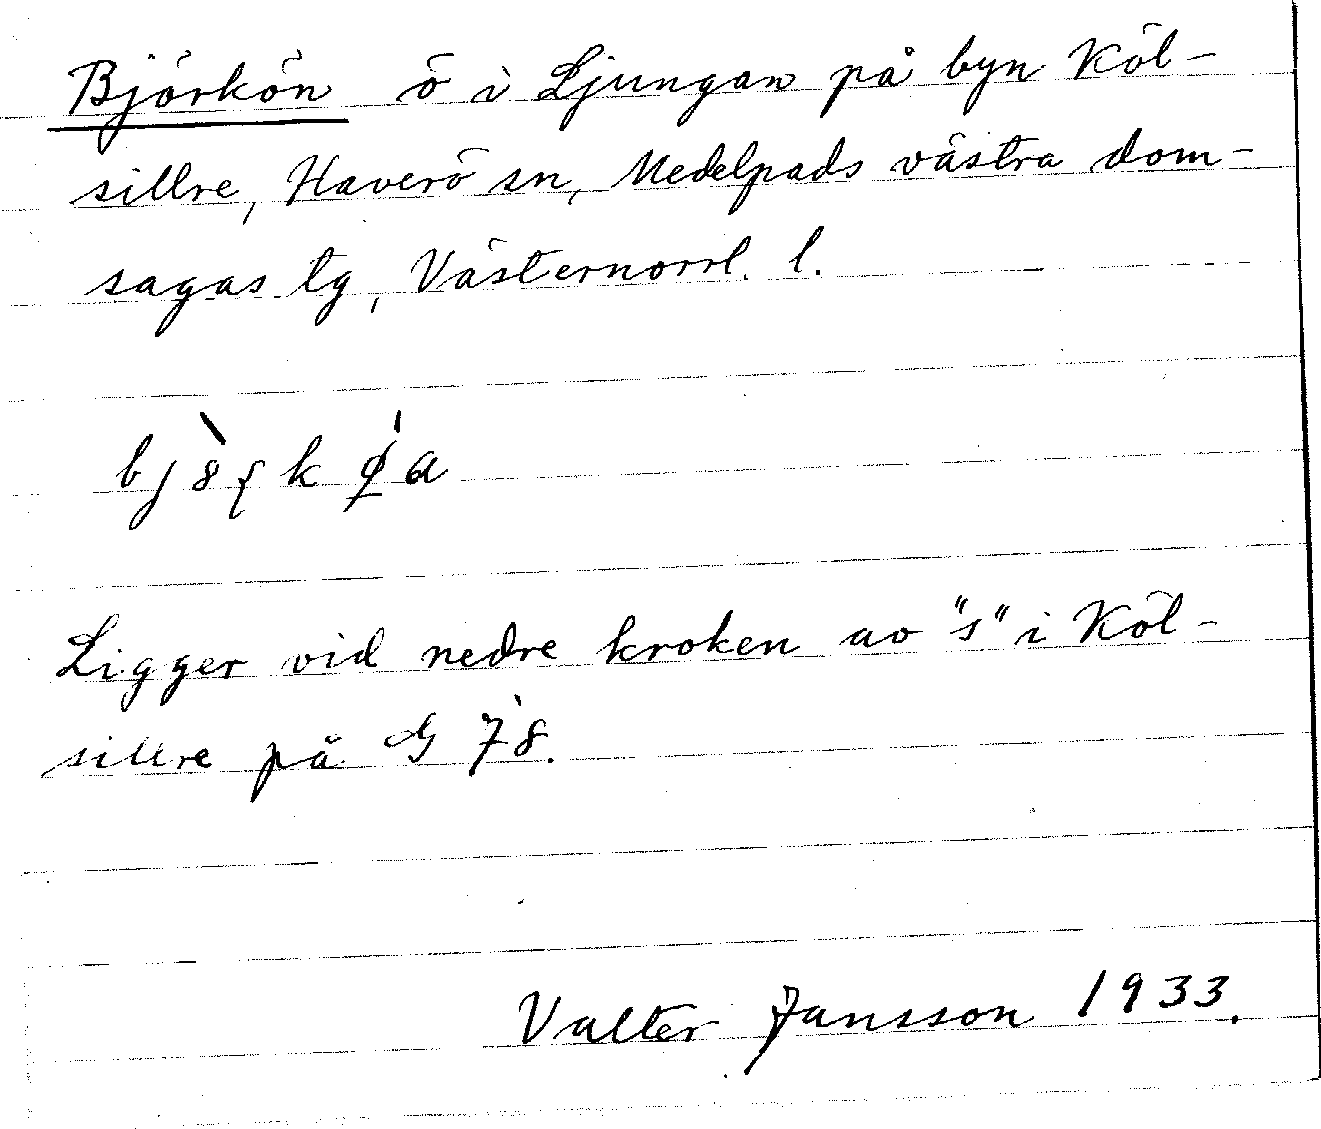 Björkön ö i Ljungan på byn Köl-
sillre, Haverö sn, Medelpads västra dom-
sagas tg, Västernorrl. l.
Ligger vid nedre kroken av "s" i Köl-
sillre på G 78.
Valter Jansson 1933.